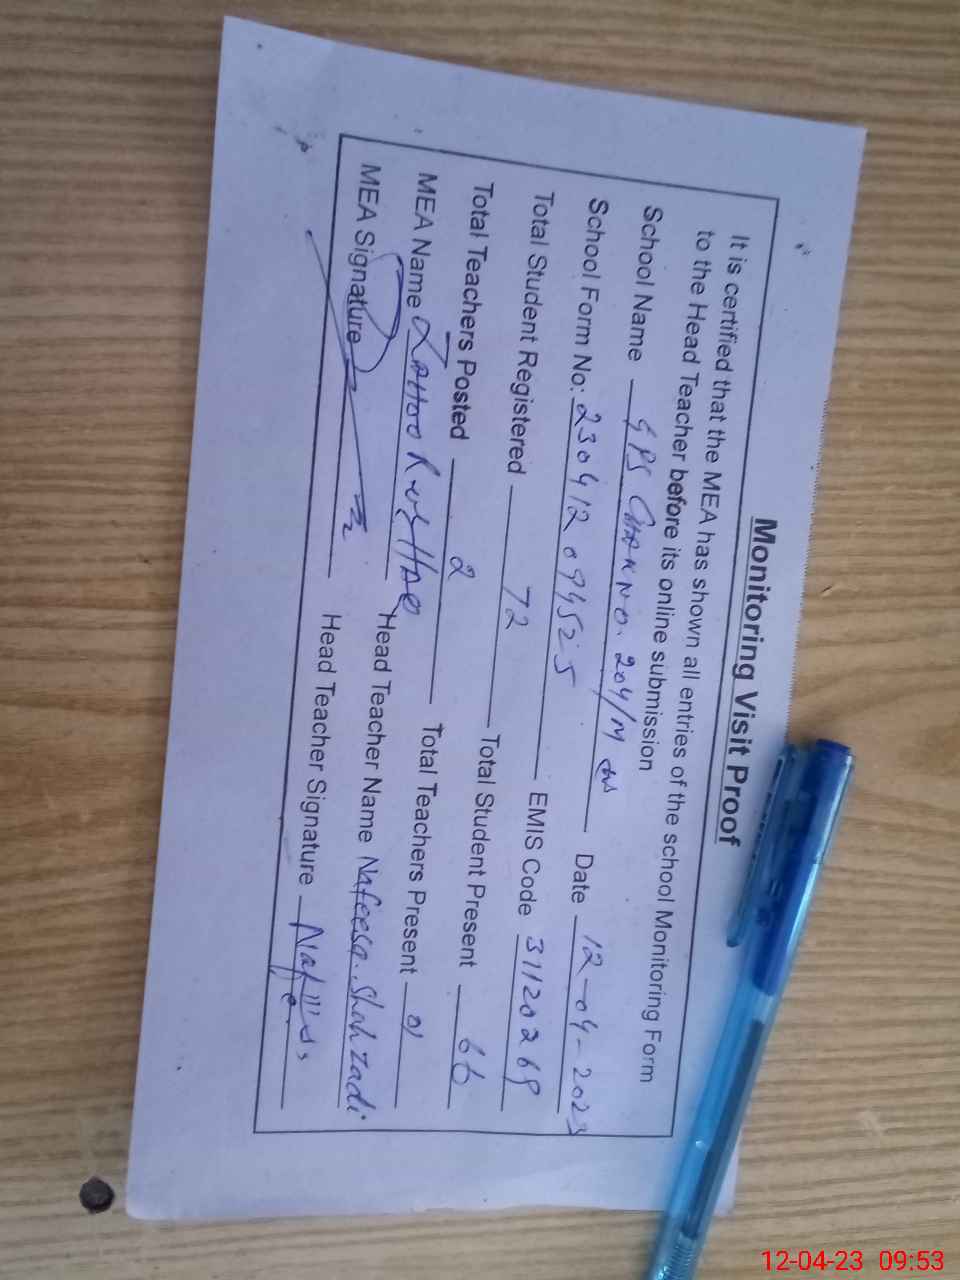 Monitoring Visit Proof
It is certified that the MEA has shown all entries of the school Monitoring Form
to the Head Teacher before its online submission
School Name GPS Chak No. 204/M Date 12-04-2023
School Form No: 230412099525 EMIS Code 31120269
Total Student Registered 72 Total Student Present 66
Total Teachers Posted 2 Total Teachers Present 01
MEA Name Head Teacher Name Nafeesa Shahzadi
MEA Signature Head Teacher Signature
12-04-23 09:53